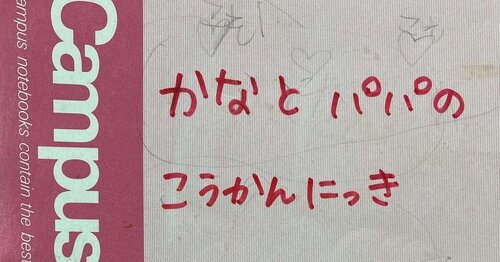 Campus
ampus notebooks contain the best
かなと パパの
こうかんにっき